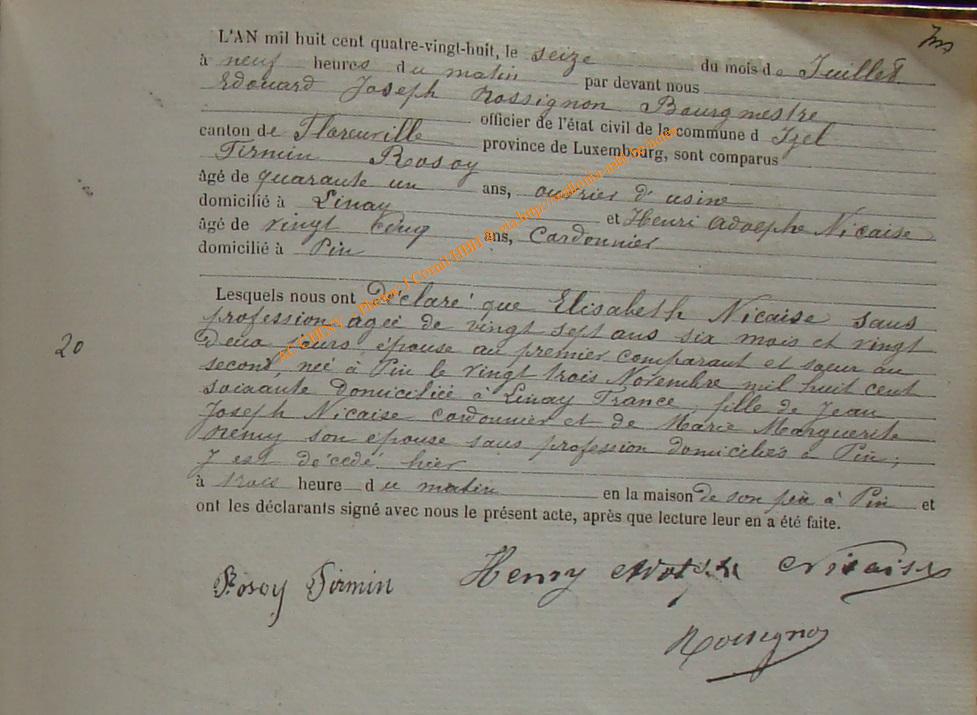 L'AN mil huit cent quatre-vingt-huit, le seize du mois de Juillet
à neuf heures du matin par devant nous
Edouard Joseph Rossignon Bourgmestre
officier de l'état civil de la commune d Izel
canton de Florenville province de Luxembourg, sont comparus
Firmin Rosoy
âgé de quarante un ans, ouvrier d'usine
domicilié à Linay et Henri Adolphe Nicaise
âgé de vingt cinq ans, Cordonnier
domicilié à Pin
Lesquels nous ont Déclaré que Elisabeth Nicaise sans
profession agée de vingt sept ans six mois et vingt
Deux jours, épouse au premier comparant et sœur au
20
second, née à Pin le vingt trois Novembre mil huit cent
soixante Domiciliée à Linay France, fille de Jean
Joseph Nicaise cordonnier et de Marie Marguerite
Remy son épouse sans profession domiciliés à Pin;
y est décédé hier
à trois heure du matin en la maison de son père à Pin et
ont les déclarants signé avec nous le présent acte, après que lecture leur en a été faite.
Rosoy Firmin Henry Adolphe Nicaise
Rossignon